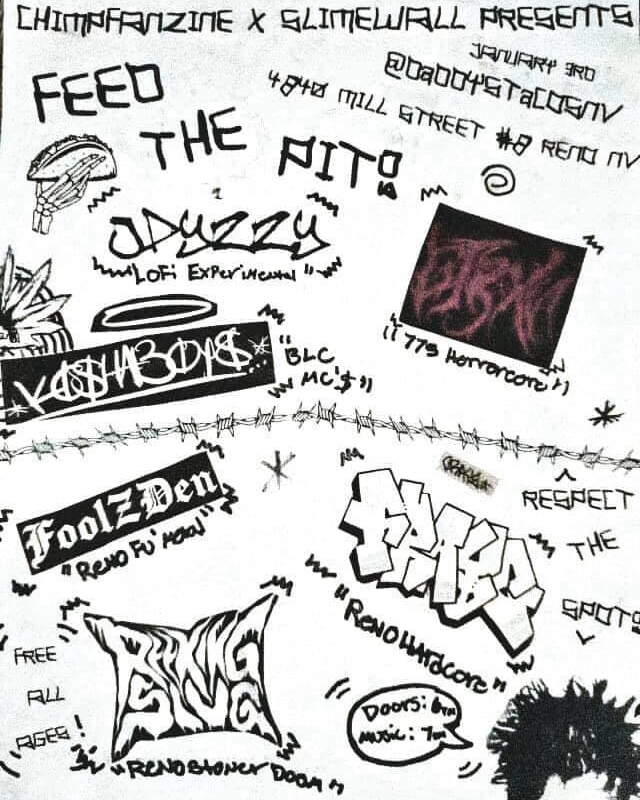 CHIMPFANZINE X SLIMEWALL PRESENTS
JANUARY 3RD
@DADDYSTACOSNV
4840 MILL STREET #8 RENO NV
FEED
THE
PIT!
JDYZZY
"LOFI EXPERIMENTAL"
"775 Horrorcore"
KO$HABOY$
"BLC
MC'$"
FoolZDen
"RENO FU' Metal"
RESPECT
THE
SPOT!
"RENO HARDCORE"
FREE
ALL
AGES!
SLUG
"RENO STONER DOOM"
DOORS: 6PM
MUSIC: 7PM